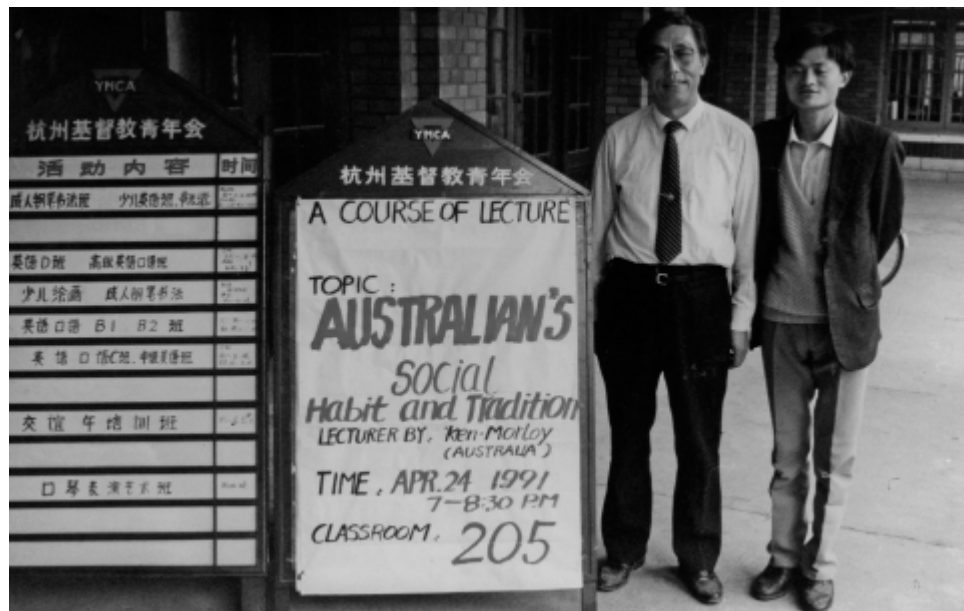 YMCA
杭州基督教青年会
活动内容 时间
成人钢笔书法班 少儿英语班.书法班
英语D班 高级英语口语班
少儿绘画 成人钢笔书法
英语口语 B1. B2 班
英语口语C班.中级英语班
交谊舞培训班
口琴表演艺术班
YMCA
杭州基督教青年会
A COURSE OF LECTURE
TOPIC :
AUSTRALIAN'S
SOCIAL
Habit and Tradition
LECTURER BY, Ken-Morloy
(AUSTRALIA)
TIME, APR.24 1991
7-8:30 P.M
CLASSROOM, 205